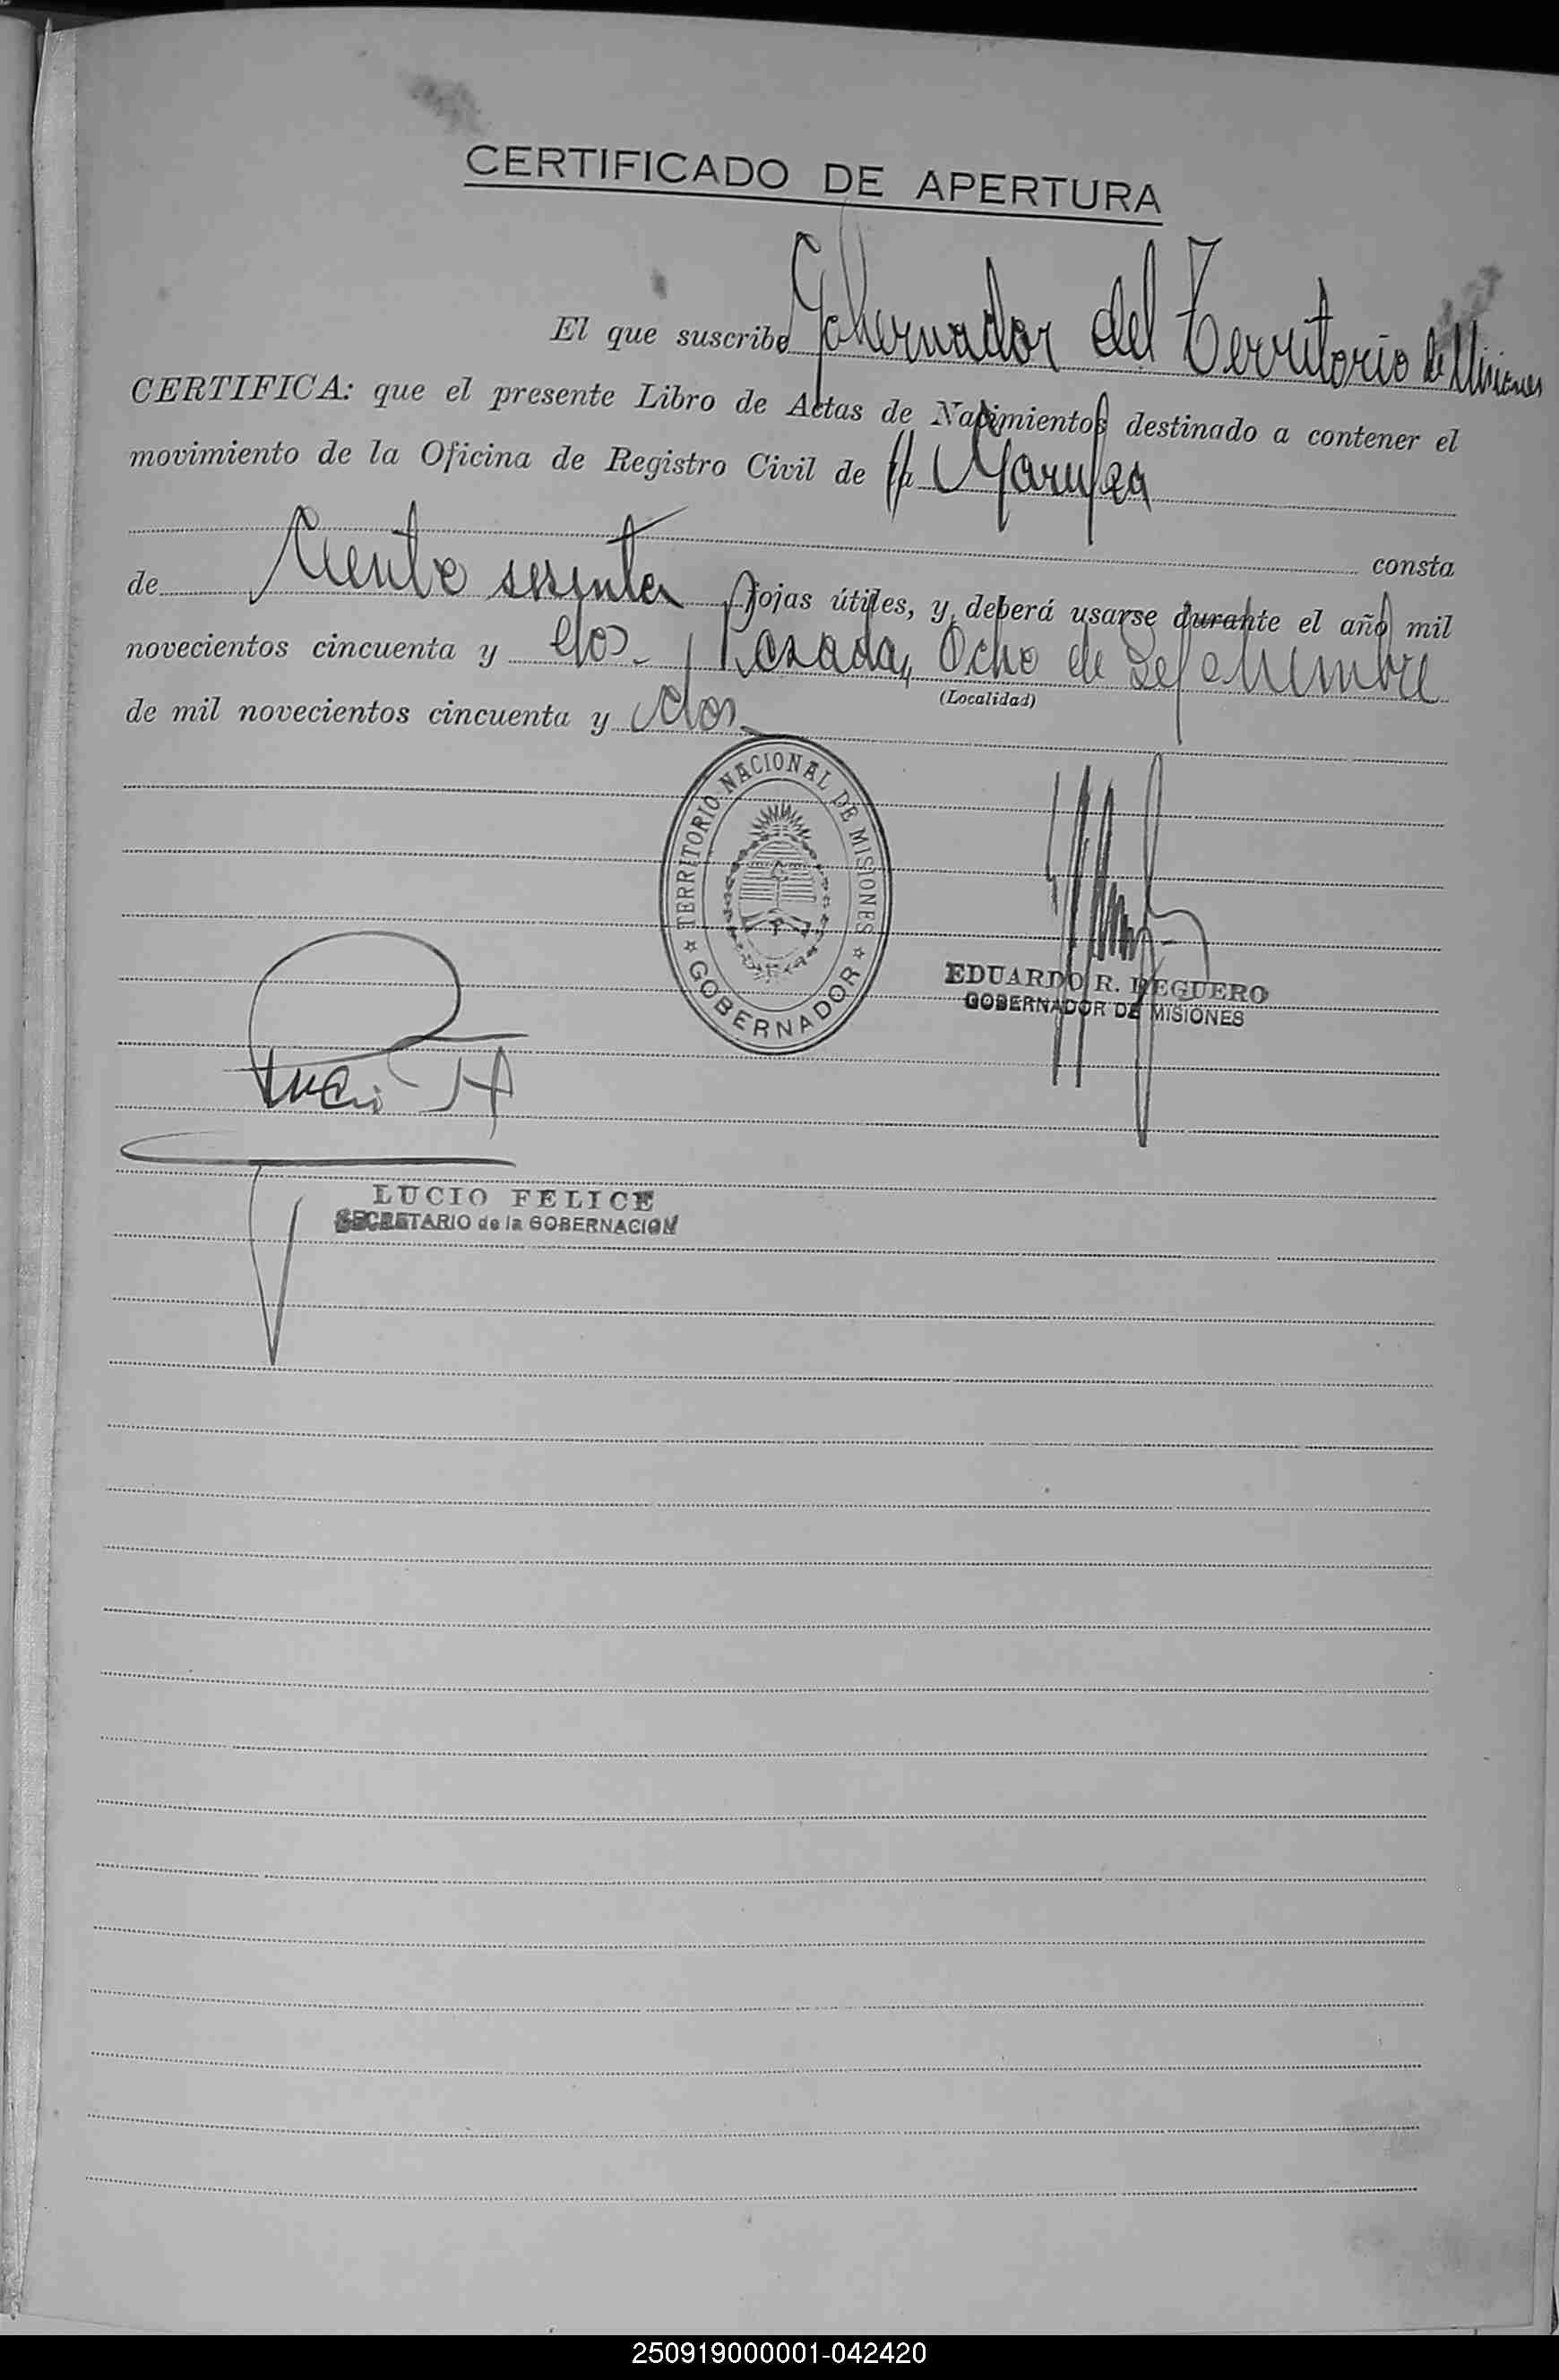 CERTIFICADO DE APERTURA
El que suscribe Gobernador del Territorio de Misiones
CERTIFICA: que el presente Libro de Actas de Nacimientos destinado a contener el
movimiento de la Oficina de Registro Civil de
consta
de Ciento sesenta fojas útiles, y deberá usarse durante el año mil
novecientos cincuenta y dos. Posadas, Ocho de Setiembre
(Localidad)
de mil novecientos cincuenta y dos
TERRITORIO NACIONAL DE MISIONES
GOBERNADOR
EDUARDO R. REGUERO
GOBERNADOR DE MISIONES
Lucio
LUCIO FELICE
SECRETARIO de la GOBERNACION
250919000001-042420